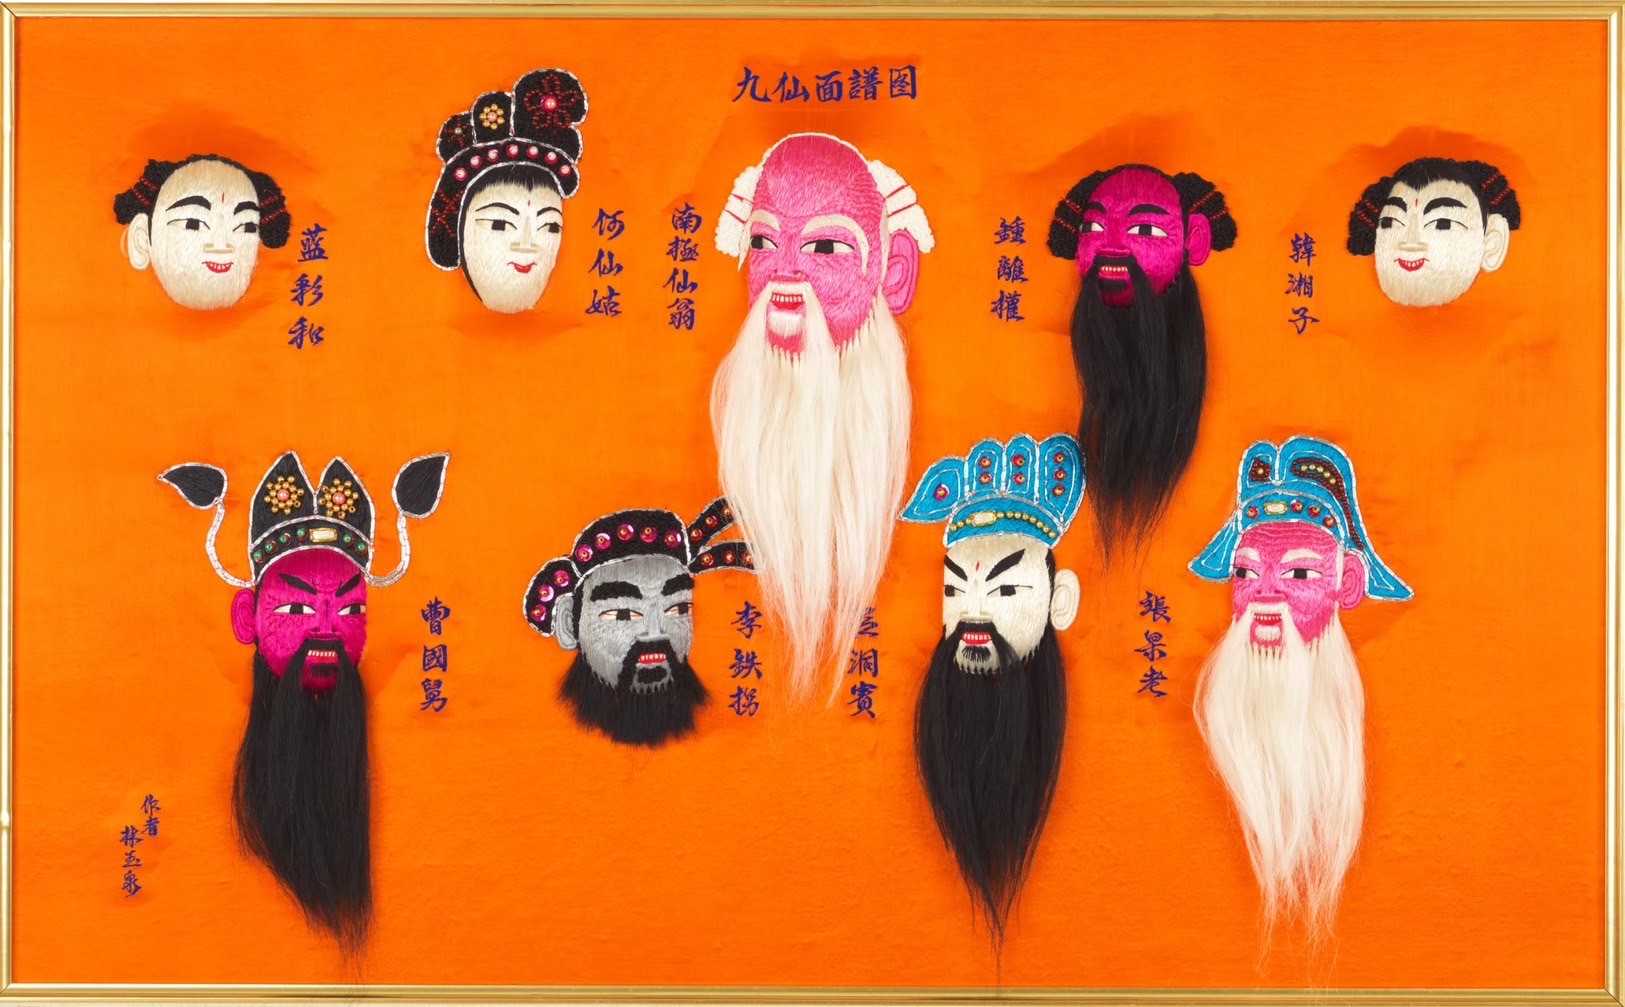 九仙面譜图
蓝彩和
何仙姑
南極仙翁
鍾離權
韓湘子
曹國舅
李鉄拐
洞賓
張果老
作者
林玉泉